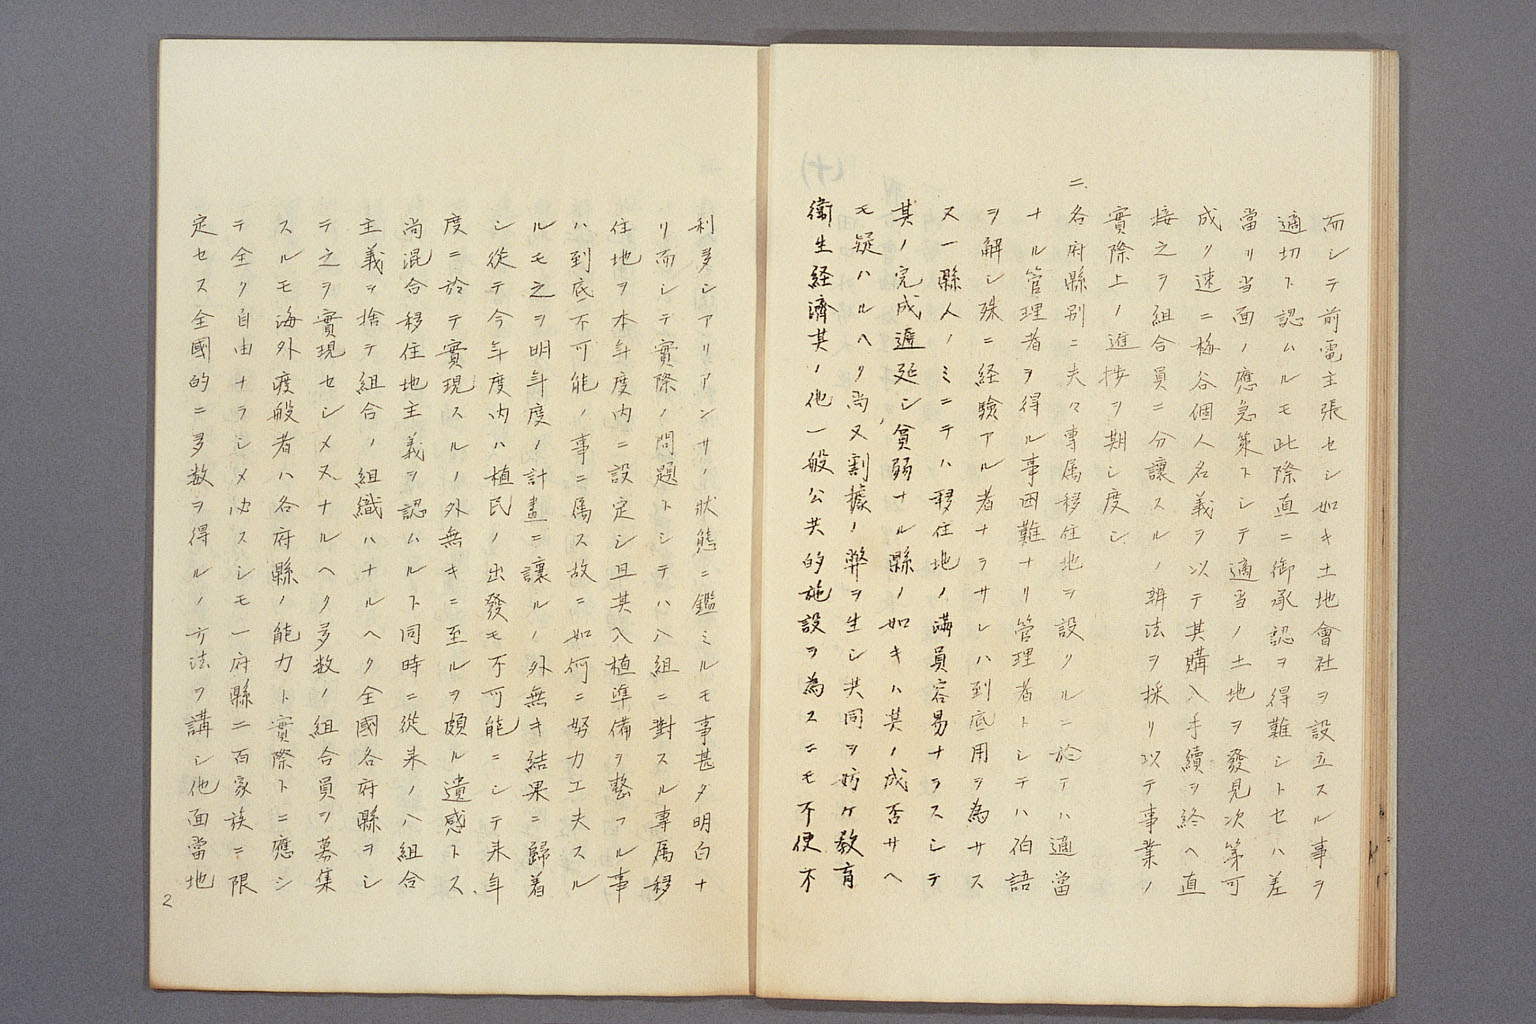 而シテ前電主張セシ如キ土地會社ヲ設立スル事ヲ
適切ト認ムルモ此際直ニ御承認ヲ得難シトセハ差
當リ当面ノ應急策トシテ適当ノ土地ヲ發見次第可
成リ速ニ梅谷個人名義ヲ以テ其購入手續ヲ終ヘ直
接之ヲ組合員ニ分讓スルノ辨法ヲ採リ以テ事業ノ
實際上ノ進捗ヲ期シ度シ
二、各府縣別ニ夫々專属移住地ヲ設クルニ於テハ適當
ナル管理者ヲ得ル事困難ナリ管理者トシテハ伯語
ヲ解シ殊ニ経驗アル者ナラサレハ到底用ヲ為サス
又一縣人ノミニテハ移住地ノ満員容易ナラスシテ
其ノ完成遷延シ貧弱ナル縣ノ如キハ其ノ成否サヘ
モ疑ハルヘク尚又割據ノ弊ヲ生シ共同ヲ妨ケ教育
衛生経濟其ノ他一般公共的施設ヲ為スニモ不便不
利多シアリアンサノ狀態ニ鑑ミルモ事甚ダ明白ナ
リ而シテ實際ノ問題トシテハ八組ニ對スル專属移
住地ヲ本年度内ニ設定シ且其入植準備ヲ整フル事
ハ到底不可能ノ事ニ属ス故ニ如何ニ努力工夫スル
ルモ之ヲ明年度ノ計畫ニ讓ルノ外無キ結果ニ歸着
シ從テ今年度内ハ植民ノ出發モ不可能ニシテ来年
度ニ於テ實現スルノ外無キニ至ルヲ頗ル遺感トス、
尚混合移住地主義ヲ認ムルト同時ニ從来ノ八組合
主義ヲ捨テ組合ノ組織ハナルヘク全國各府縣ヲシ
テ之ヲ實現セシメ又ナルヘク多数ノ組合員ヲ募集
スルモ海外渡般者ハ各府縣ノ能力ト實際トニ應シ
テ全ク自由ナラシメ必スシモ一府縣二百家族ニ限
定セス全國的ニ多数ヲ得ルノ方法ヲ講シ他面當地
2